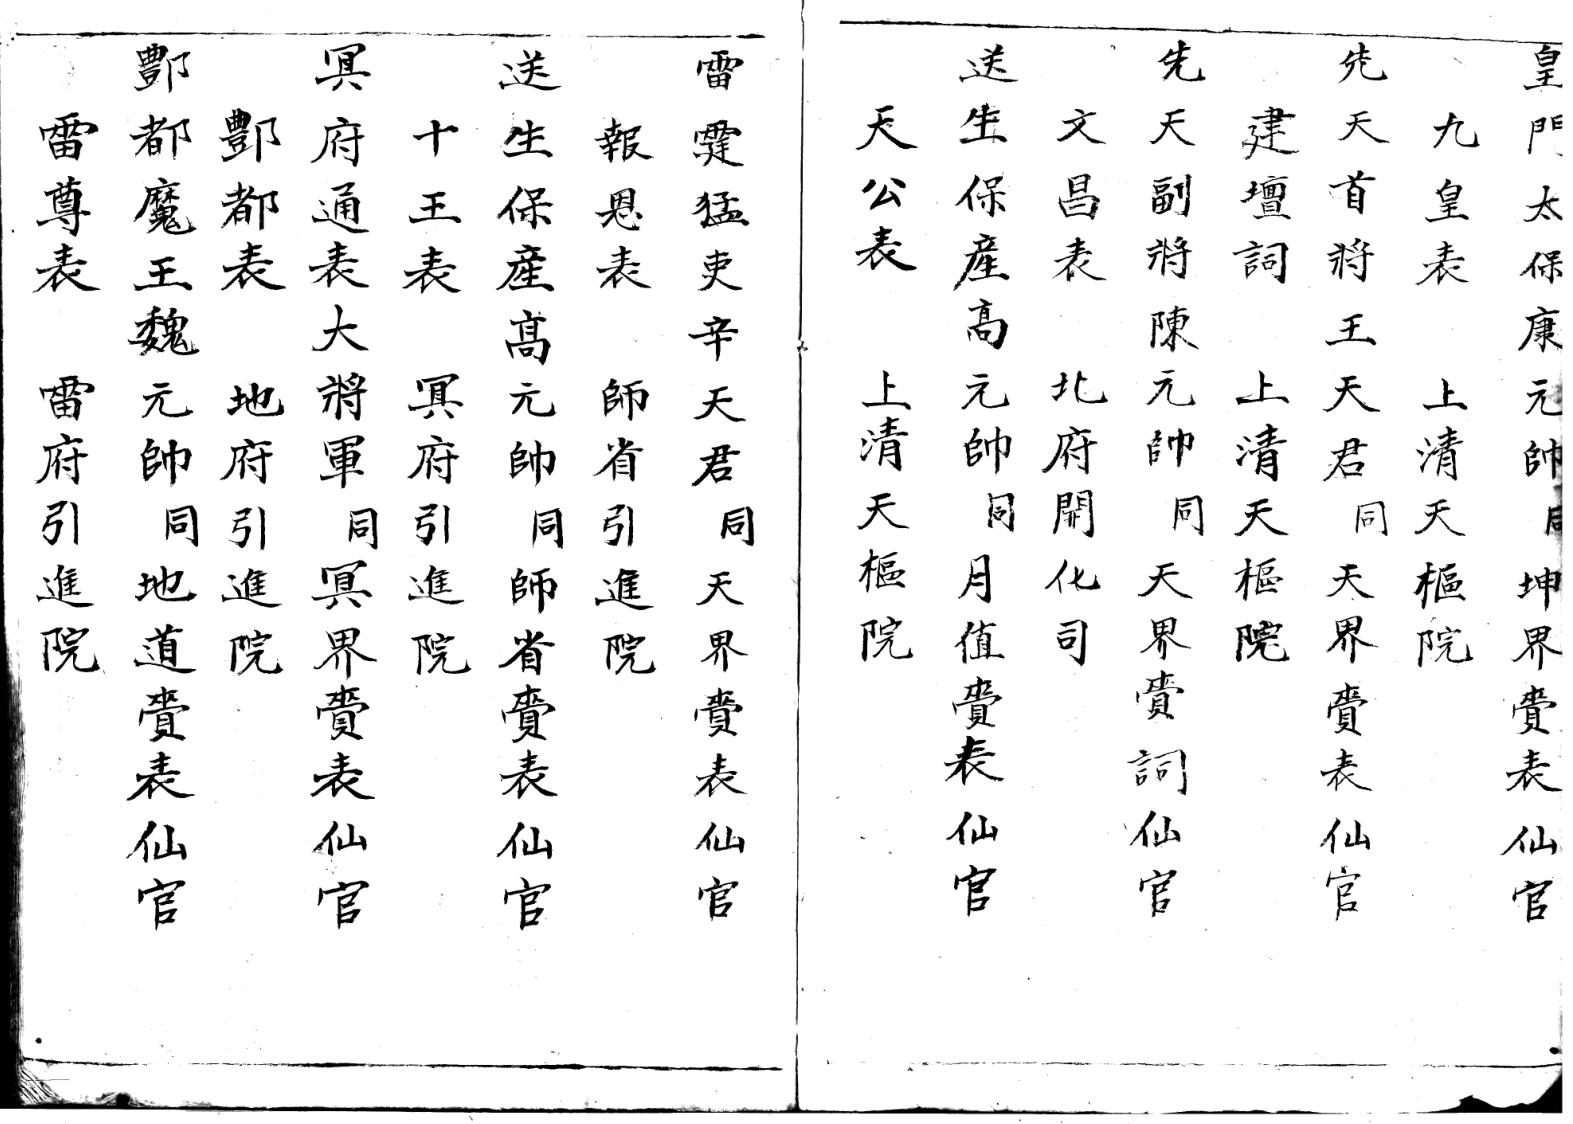 皇門太保康元帥同坤界賫表仙官
九皇表　上清天樞院
先天首將王天君同天界賫表仙官
建壇詞　上清天樞院
先天副將陳元帥同天界賫詞仙官
文昌表　北府開化司
送生保産高元帥同月值賫表仙官
天公表　上清天樞院
雷霆猛吏辛天君同天界賫表仙官
報恩表　師省引進院
送生保産髙元帥同師省賫表仙官
十王表　冥府引進院
冥府通表大將軍同冥界賫表仙官
酆都表　地府引進院
酆都魔王魏元帥同地道賫表仙官
雷尊表　雷府引進院